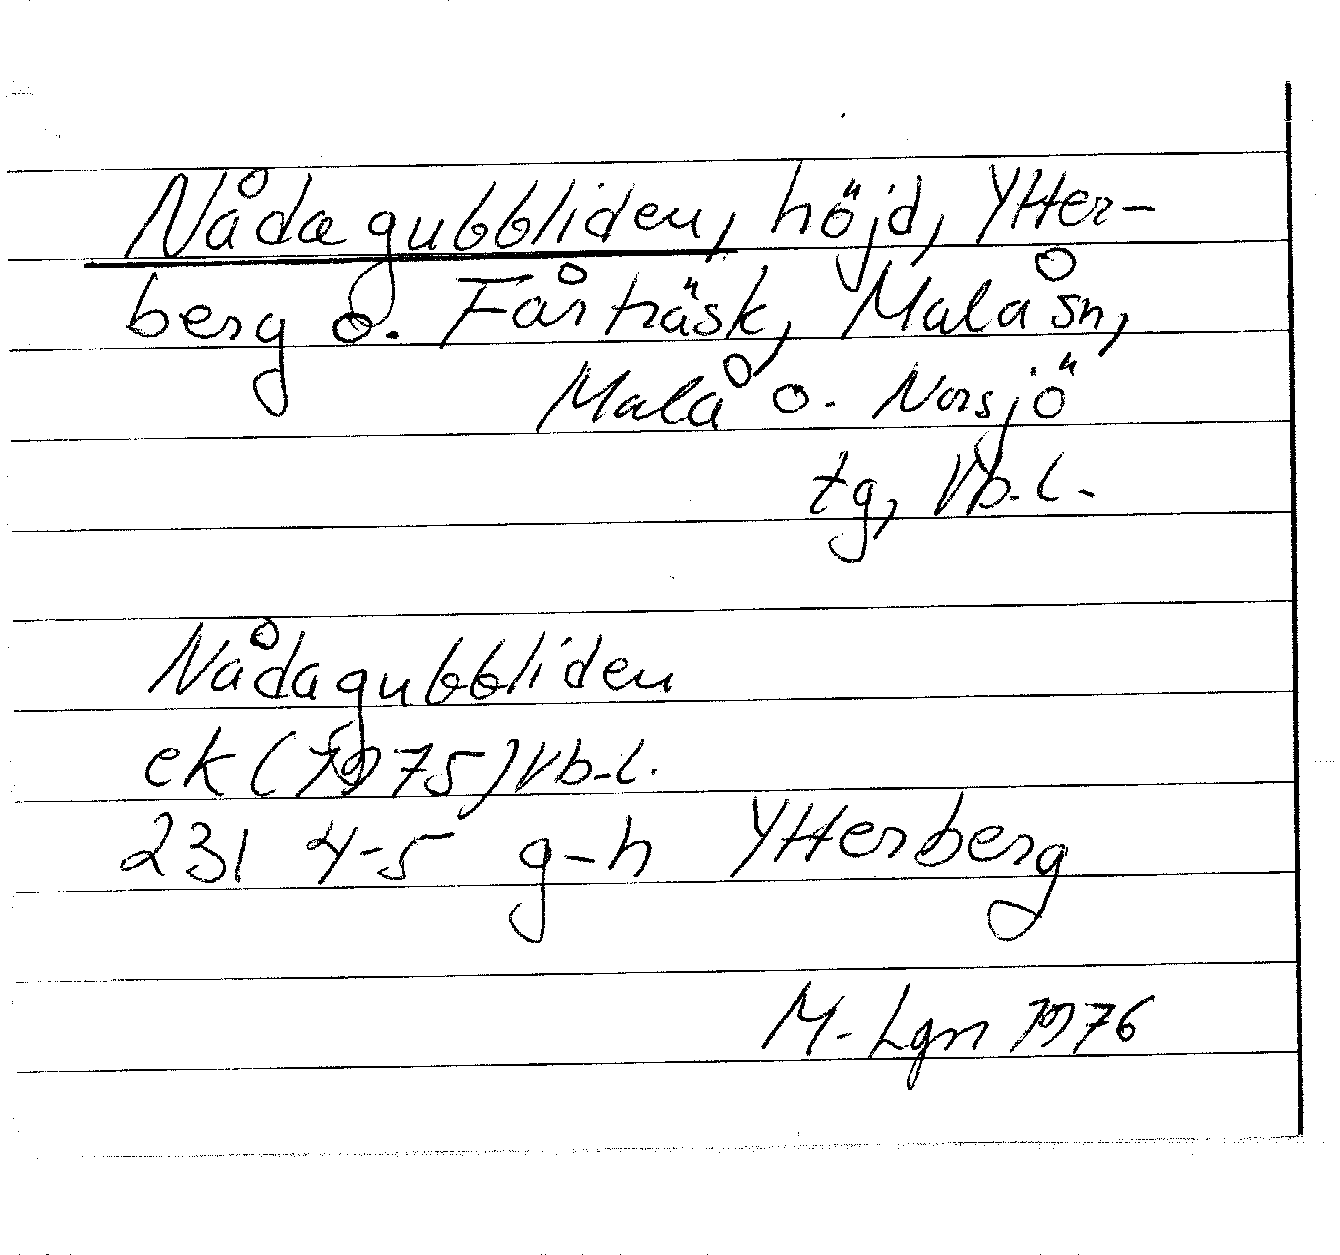 Nådagubbliden, höjd, Ytter-
berg o. Fårträsk, Malå sn,
Malå o. Norsjö
tg, Vb. l.
Nådagubbliden
ek (1975) Vb. l.
231 4-5 g-h Ytterberg
M. Lgn 1976